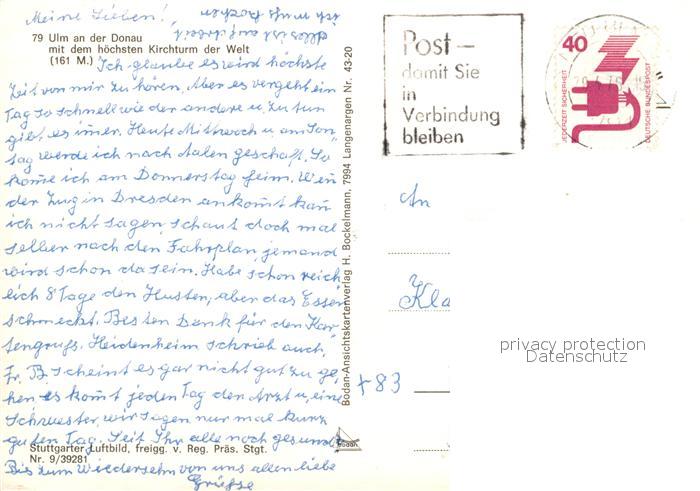 Meine Lieben!
79 Ulm an der Donau
mit dem höchsten Kirchturm der Welt
(161 M.)
Ich glaube es wird höchste
Zeit von mir zu hören. Aber es vergeht ein
Tag so schnell wie der andere u. zu tun
gibt es imer. Heute Mittwoch u. am Son-
tag werde ich nach Aalen geschaft. So
kome ich am Donnerstag heim. Wen
der Zug in Dresden ankomt kan
ich nicht sagen, schaut doch mal
selber nach den Fahrplan, jemand
wird schon da sein. Habe schon reich
lich 8 Tage den Husten, aber das Essen
schmeckt. Besten Dank für den Kar
tengruß. Heidenheim schrieb auch.
Fr. B. scheint es gar nicht gut zu ge,
hen es komt jeden Tag der Arzt u, eine
Schwester, wir sagen nur mal kurz
guten Tag. Seit Ihr alle noch gesund
Bis zum Wiedersehn von uns allen liebe
Grüsse
Stuttgarter Luftbild, freigg. v. Reg. Präs. Stgt.
Nr. 9/39281
Bodan-Ansichtskartenverlag H. Bockelmann, 7994 Langenargen Nr. 43-20
bodan
Post –
damit Sie
in
Verbindung
bleiben
40
JEDERZEIT SICHERHEIT
DEUTSCHE BUNDESPOST
An
Kla
+83
privacy protection
Datenschutz